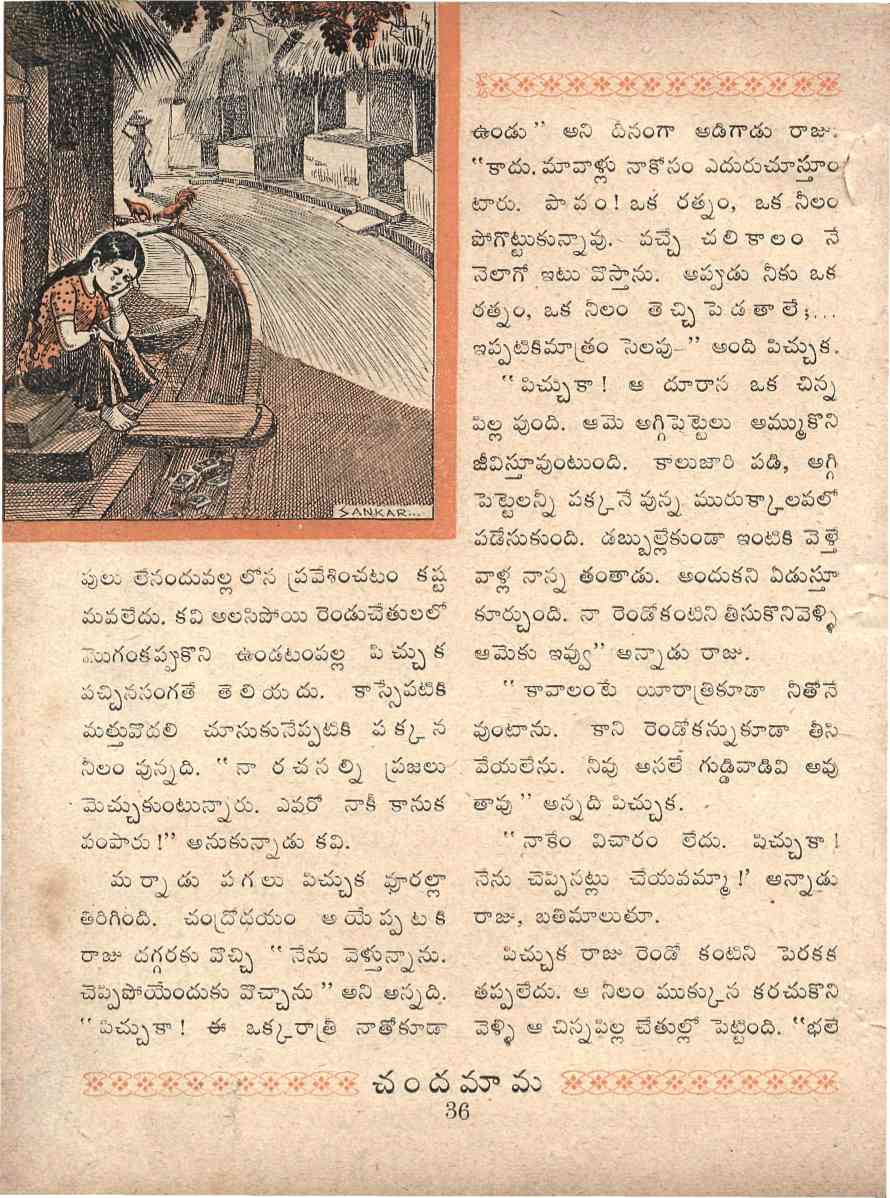 SANKAR...
పులు లేనందువల్ల లోన ప్రవేశించటం కష్ట
మవలేదు. కవి అలసిపోయి రెండుచేతులలో
మొగంకప్పుకొని ఉండటంవల్ల పిచ్చుక
వచ్చినసంగతే తెలియదు. కాస్సేపటికి
మత్తువొదలి చూసుకునేప్పటికి పక్కన
నీలం వున్నది. “నా రచనల్ని ప్రజలు
మెచ్చుకుంటున్నారు. ఎవరో నాకీ కానుక
పంపారు!” అనుకున్నాడు కవి.
మర్నాడు పగలు పిచ్చుక వూరల్లా
తిరిగింది. చంద్రోదయం అయేప్పటకి
రాజు దగ్గరకు వొచ్చి “నేను వెళ్తున్నాను.
చెప్పిపోయేందుకు వొచ్చాను” అని అన్నది.
“పిచ్చుకా! ఈ ఒక్కరాత్రీ నాతోకూడా
ఉండు” అని దీనంగా అడిగాడు రాజు.
“కాదు. మావాళ్లు నాకోసం ఎదురుచూస్తూం
టారు. పాపం! ఒక రత్నం, ఒక నీలం
పోగొట్టుకున్నావు. వచ్చే చలికాలం నే
నెలాగో ఇటు వొస్తాను. అప్పుడు నీకు ఒక
రత్నం, ఒక నీలం తెచ్చిపెడతాలే;...
ఇప్పటికిమాత్రం సెలవు—” అంది పిచ్చుక.
“పిచ్చుకా! ఆ దూరాన ఒక చిన్న
పిల్ల వుంది. ఆమె అగ్గిపెట్టెలు అమ్ముకొని
జీవిస్తూవుంటుంది. కాలుజారి పడి, అగ్గి
పెట్టెలన్నీ పక్కనేవున్న మురుక్కాలవలో
పడేసుకుంది. డబ్బుల్లేకుండా ఇంటికి వెళ్తే
వాళ్ల నాన్న తంతాడు. అందుకని ఏడుస్తూ
కూర్చుంది. నా రెండోకంటిని తీసుకొనివెళ్ళి
ఆమెకు ఇవ్వు” అన్నాడు రాజు.
“కావాలంటే యీరాత్రికూడా నీతోనే
వుంటాను. కాని రెండోకన్నుకూడా తీసి
వేయలేను. నీవు అసలే గుడ్డివాడివి అవు
తావు” అన్నది పిచ్చుక.
“నాకేం విచారం లేదు. పిచ్చుకా!
నేను చెప్పినట్లు చేయవమ్మా!’ అన్నాడు
రాజు, బతిమాలుతూ.
పిచ్చుక రాజు రెండో కంటిని పెరకక
తప్పలేదు. ఆ నీలం ముక్కున కరచుకొని
వెళ్ళి ఆ చిన్నపిల్ల చేతుల్లో పెట్టింది. “భలే
చందమామ
36